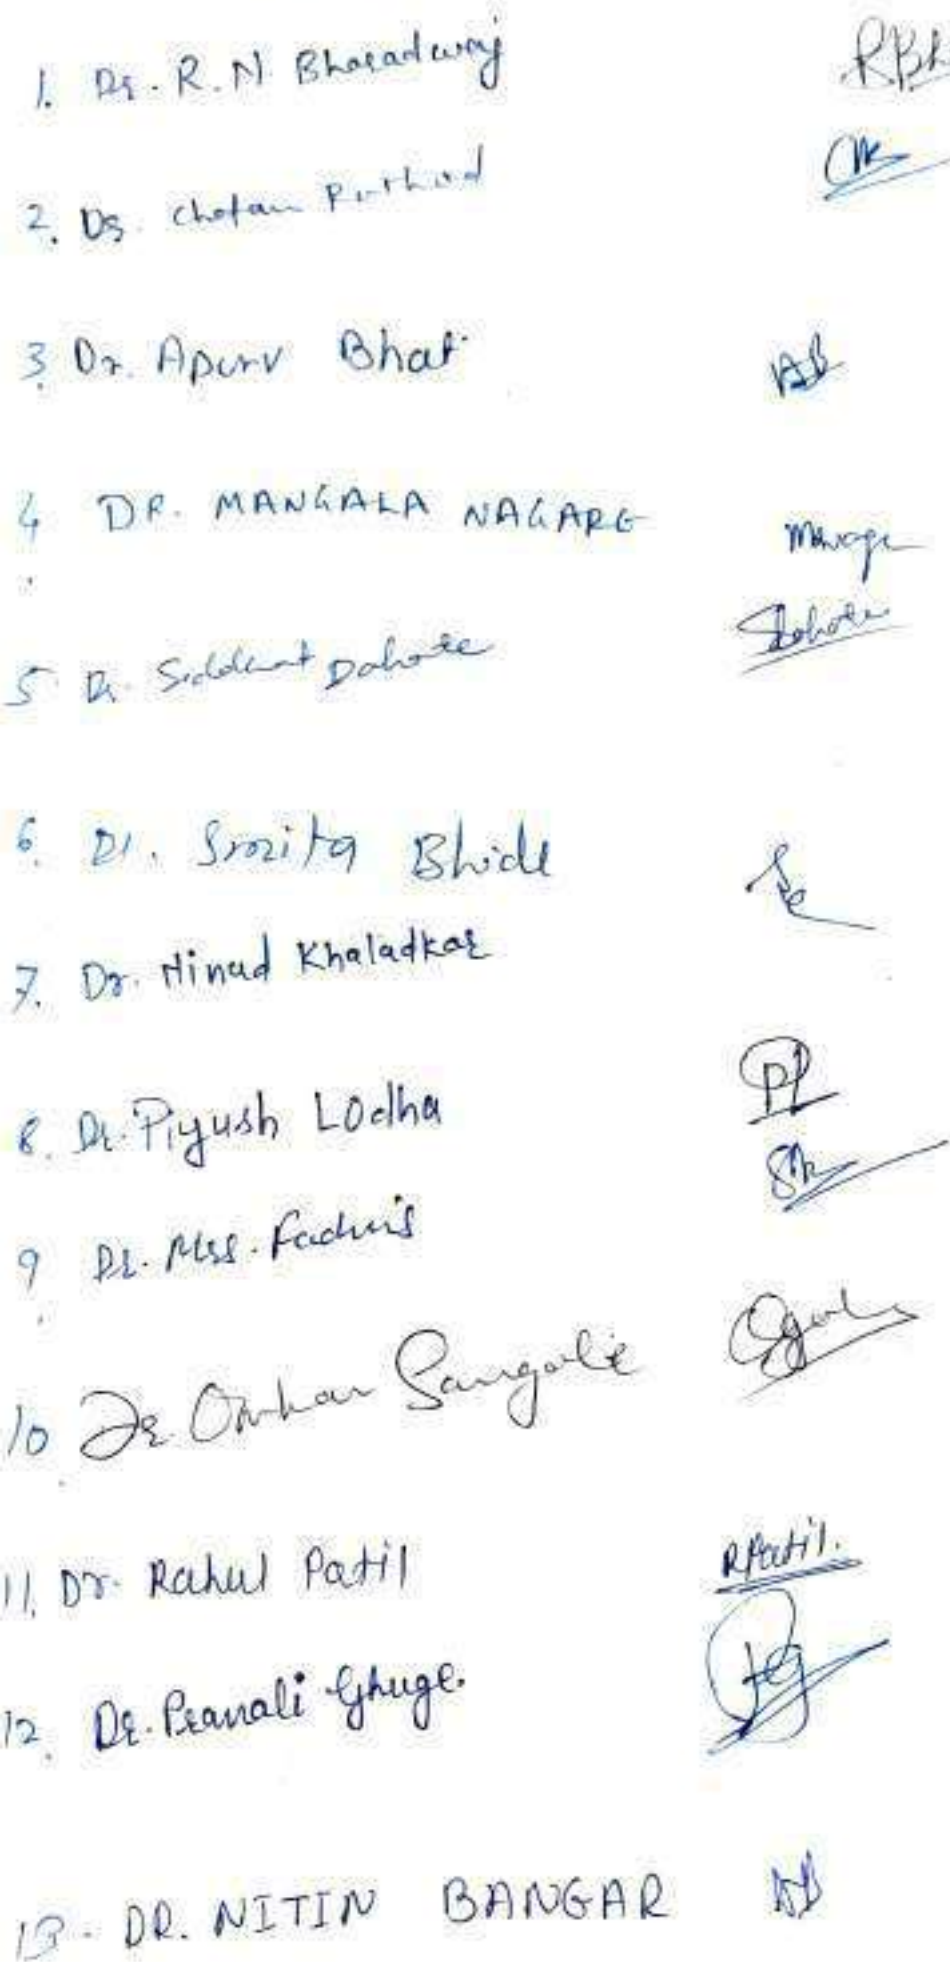 1. Dr. R. N. Bharadwaj RBh
2. Dr. Chetan Rathod
3. Dr. Apurv Bhat AB
4 DR. MANGALA NAGARE
5 Dr. Siddhant Dahote
6. Dr. Smita Bhide
7. Dr. Ninad Khaladkar
8. Dr. Piyush Lodha PL
9 Dr. Mrs. Fadnis
10 Dr. Omkar
11. Dr. Rahul Patil RPatil.
12. Dr. Pranali Ghuge.
13. DR. NITIN BANGAR